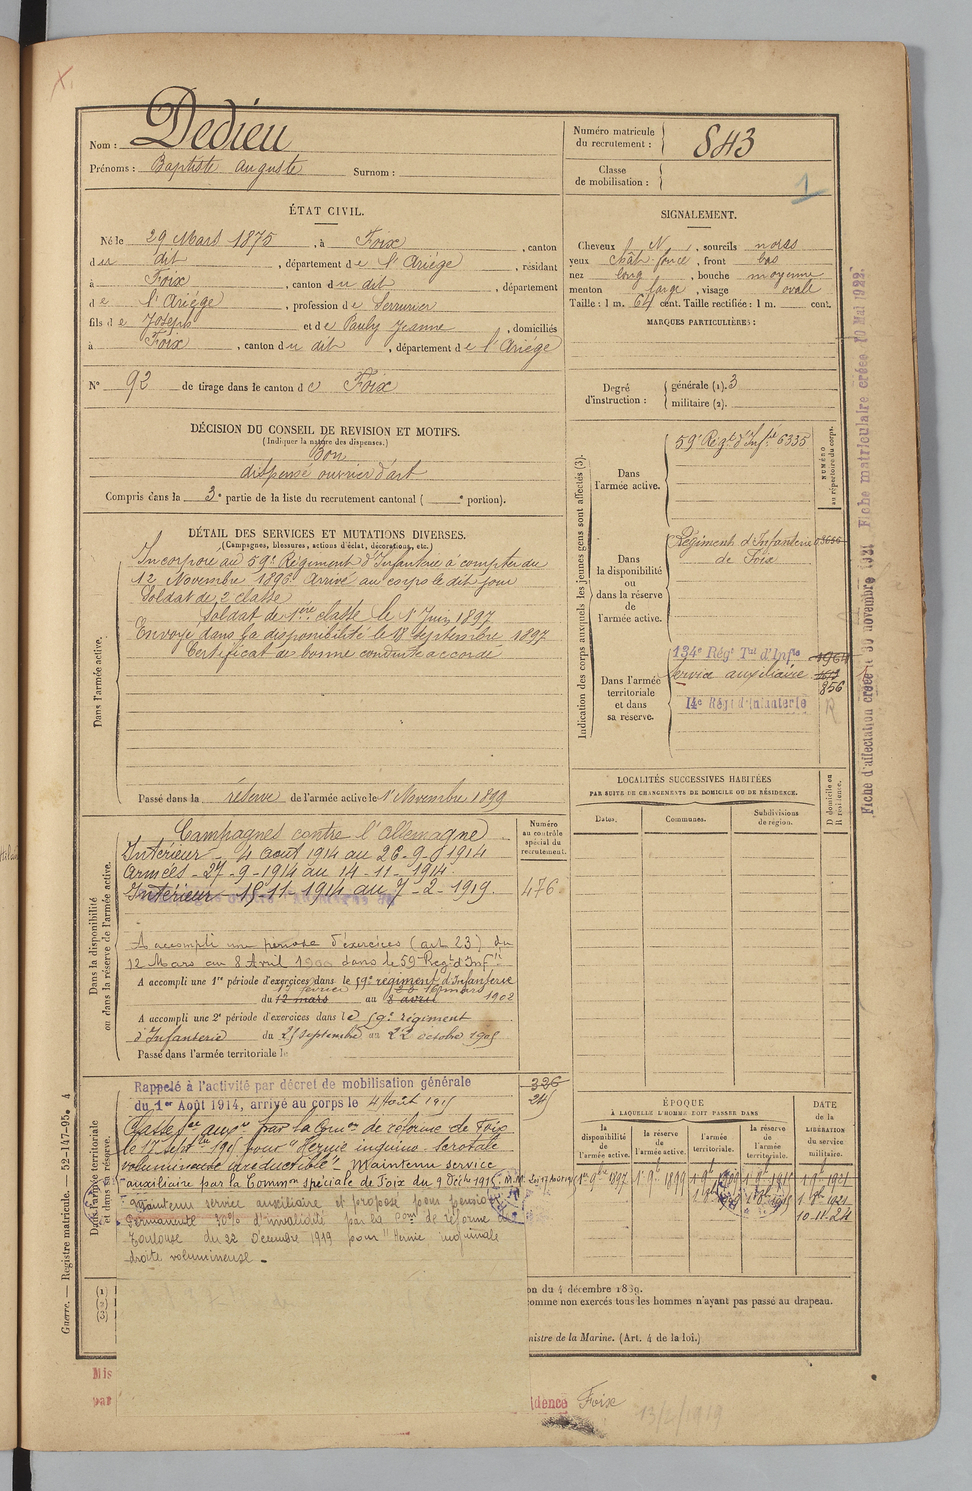 Nom : Dedieu
Prénoms : Baptiste Auguste Surnom :
Numéro matricule du recrutement : 843
Classe de mobilisation :
1
ÉTAT CIVIL.
Né le 29 Mars 1875, à Foix, canton
du dit, département de l'Ariége, résidant
à Foix, canton du dit, département
de l'Ariége, profession de Serrurier
fils de Joseph et de Pauly Jeanne, domiciliés
à Foix, canton du dit, département de l'Ariége
N° 92 de tirage dans le canton de Foix
SIGNALEMENT.
Cheveux N, sourcils noirs
yeux chât. foncé, front bas
nez long, bouche moyenne
menton large, visage ovale
Taille : 1 m. 64 cent. Taille rectifiée : 1 m. cent.
MARQUES PARTICULIÈRES :
Degré d'instruction : générale (1). 3
militaire (2).
DÉCISION DU CONSEIL DE REVISION ET MOTIFS.
(Indiquer la nature des dispenses.)
Bon
dispensé ouvrier d'art
Compris dans la 3e partie de la liste du recrutement cantonal ( e portion).
DÉTAIL DES SERVICES ET MUTATIONS DIVERSES.
(Campagnes, blessures, actions d'éclat, décorations, etc.)
Dans l'armée active.
Incorporé au 59e Régiment d'Infanterie à compter du
12 Novembre 1896 arrivé au corps le dit jour
Soldat de 2e classe
Soldat de 1ère classe le 1er Juin 1897
Envoyé dans la disponibilité le 18 Septembre 1897
Certificat de bonne conduite accordé
Passé dans la réserve de l'armée active le 1er Novembre 1899
Indication des corps auxquels les jeunes gens sont affectés (3).
NUMÉRO au répertoire du corps.
Dans l'armée active.
59e Régt d'Infie 6335
Dans la disponibilité ou dans la réserve de l'armée active.
Régiment d'Infanterie
de Foix
Dans l'armée territoriale et dans sa réserve.
134e Régt Tal d'Infie
service auxiliaire
856
14e Régt d'Infanterie
Fiche d'affectation créée le 30 novembre 1921 Fiche matriculaire créée 10 Mai 1922.
LOCALITÉS SUCCESSIVES HABITÉES
PAR SUITE DE CHANGEMENTS DE DOMICILE OU DE RÉSIDENCE.
Dates. Communes. Subdivisions de région. D domicile ou R résidence.
Dans la disponibilité ou dans la réserve de l'armée active.
Numéro au contrôle spécial du recrutement.
476
Campagnes contre l'Allemagne
Intérieur - 4 août 1914 au 26-9-1914
Armées - 27-9-1914 au 14-11-1914
Intérieur - 15-11-1914 au 7-2-1919.
A accompli une période d'exercices (art 23) du
12 Mars au 8 Avril 1900 dans le 59e Régt d'Infie
A accompli une 1re période d'exercices dans le 59e régiment d'Infanterie
du 12 mars au 8 avril 1902
A accompli une 2e période d'exercices dans le 59e régiment
d'Infanterie du 25 septembre au 22 octobre 1905
Passé dans l'armée territoriale le
Dans l'armée territoriale et dans sa réserve.
Rappelé à l'activité par décret de mobilisation générale
du 1er Août 1914, arrivé au corps le 4 Août 1915
326
245
Classé ser auxre par la Comon de réforme de Foix
le 17 Septbre 1915 pour "Hernie inguino scrotale
volumineuse irréductible". Maintenu service
auxiliaire par la Common spéciale de Foix du 9 Décbre 1915.
Maintenu service auxiliaire et proposé pour pension
permanente 30% d'invalidité par la Comon de réforme de
Toulouse du 22 Décembre 1919 pour "Hernie inguinale
droite volumineuse.
ÉPOQUE
À LAQUELLE L'HOMME DOIT PASSER DANS
la disponibilité de l'armée active.
la réserve de l'armée active.
l'armée territoriale.
la réserve de l'armée territoriale.
DATE de la LIBÉRATION du service militaire.
1er 9bre 1897 1er 9bre 1899
10-11-24
on du 4 décembre 1889.
omme non exercés tous les hommes n'ayant pas passé au drapeau.
nistre de la Marine. (Art. 4 de la loi.)
(1)
(2)
(3)
Guerre. — Registre matricule. — 52-147-95. 4
Mis
par
idence Foix
13/2/1919